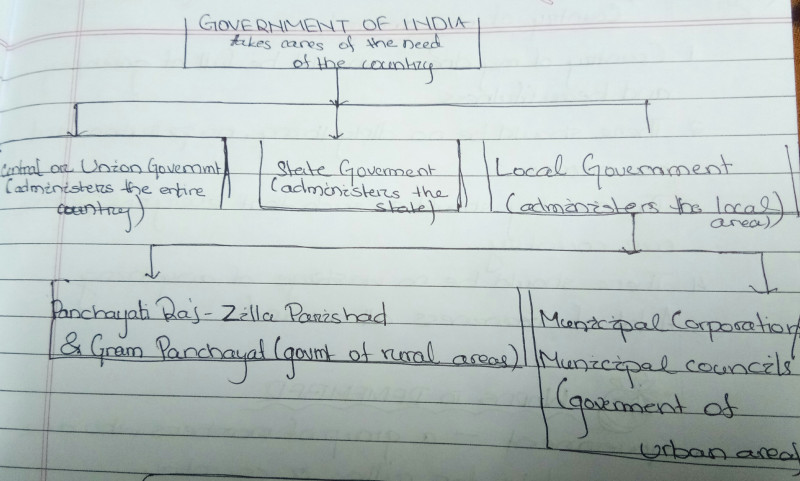 GOVERNMENT OF INDIA
takes cares of the need
of the country
Central or Union Govermnt
(administers the entire
country)
State Goverment
(administers the
state)
Local Government
(administers the local
area)
Panchayati Raj - Zilla Parishad
& Gram Panchayat (govmt of rural areas)
Municipal Corporation
Municipal councils
(goverment of
urban areas